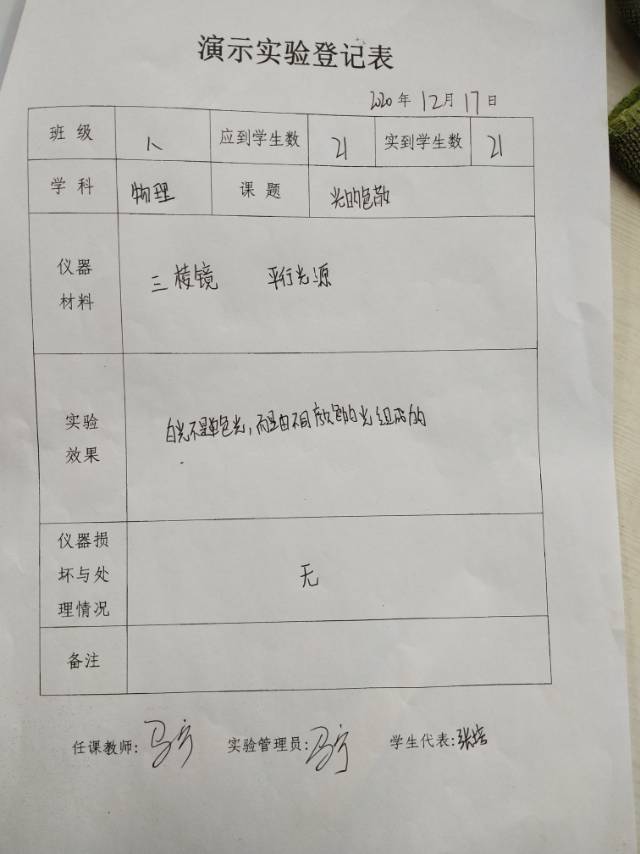 演示实验登记表
2020年12月17日
班级 八 应到学生数 21 实到学生数 21
学科 物理 课题 光的色散
仪器材料 三棱镜 平行光源
实验效果 白光不是单色光，而是由不同颜色的光组成的
仪器损坏与处理情况 无
备注
任课教师：马宁 实验管理员：马宁 学生代表：张